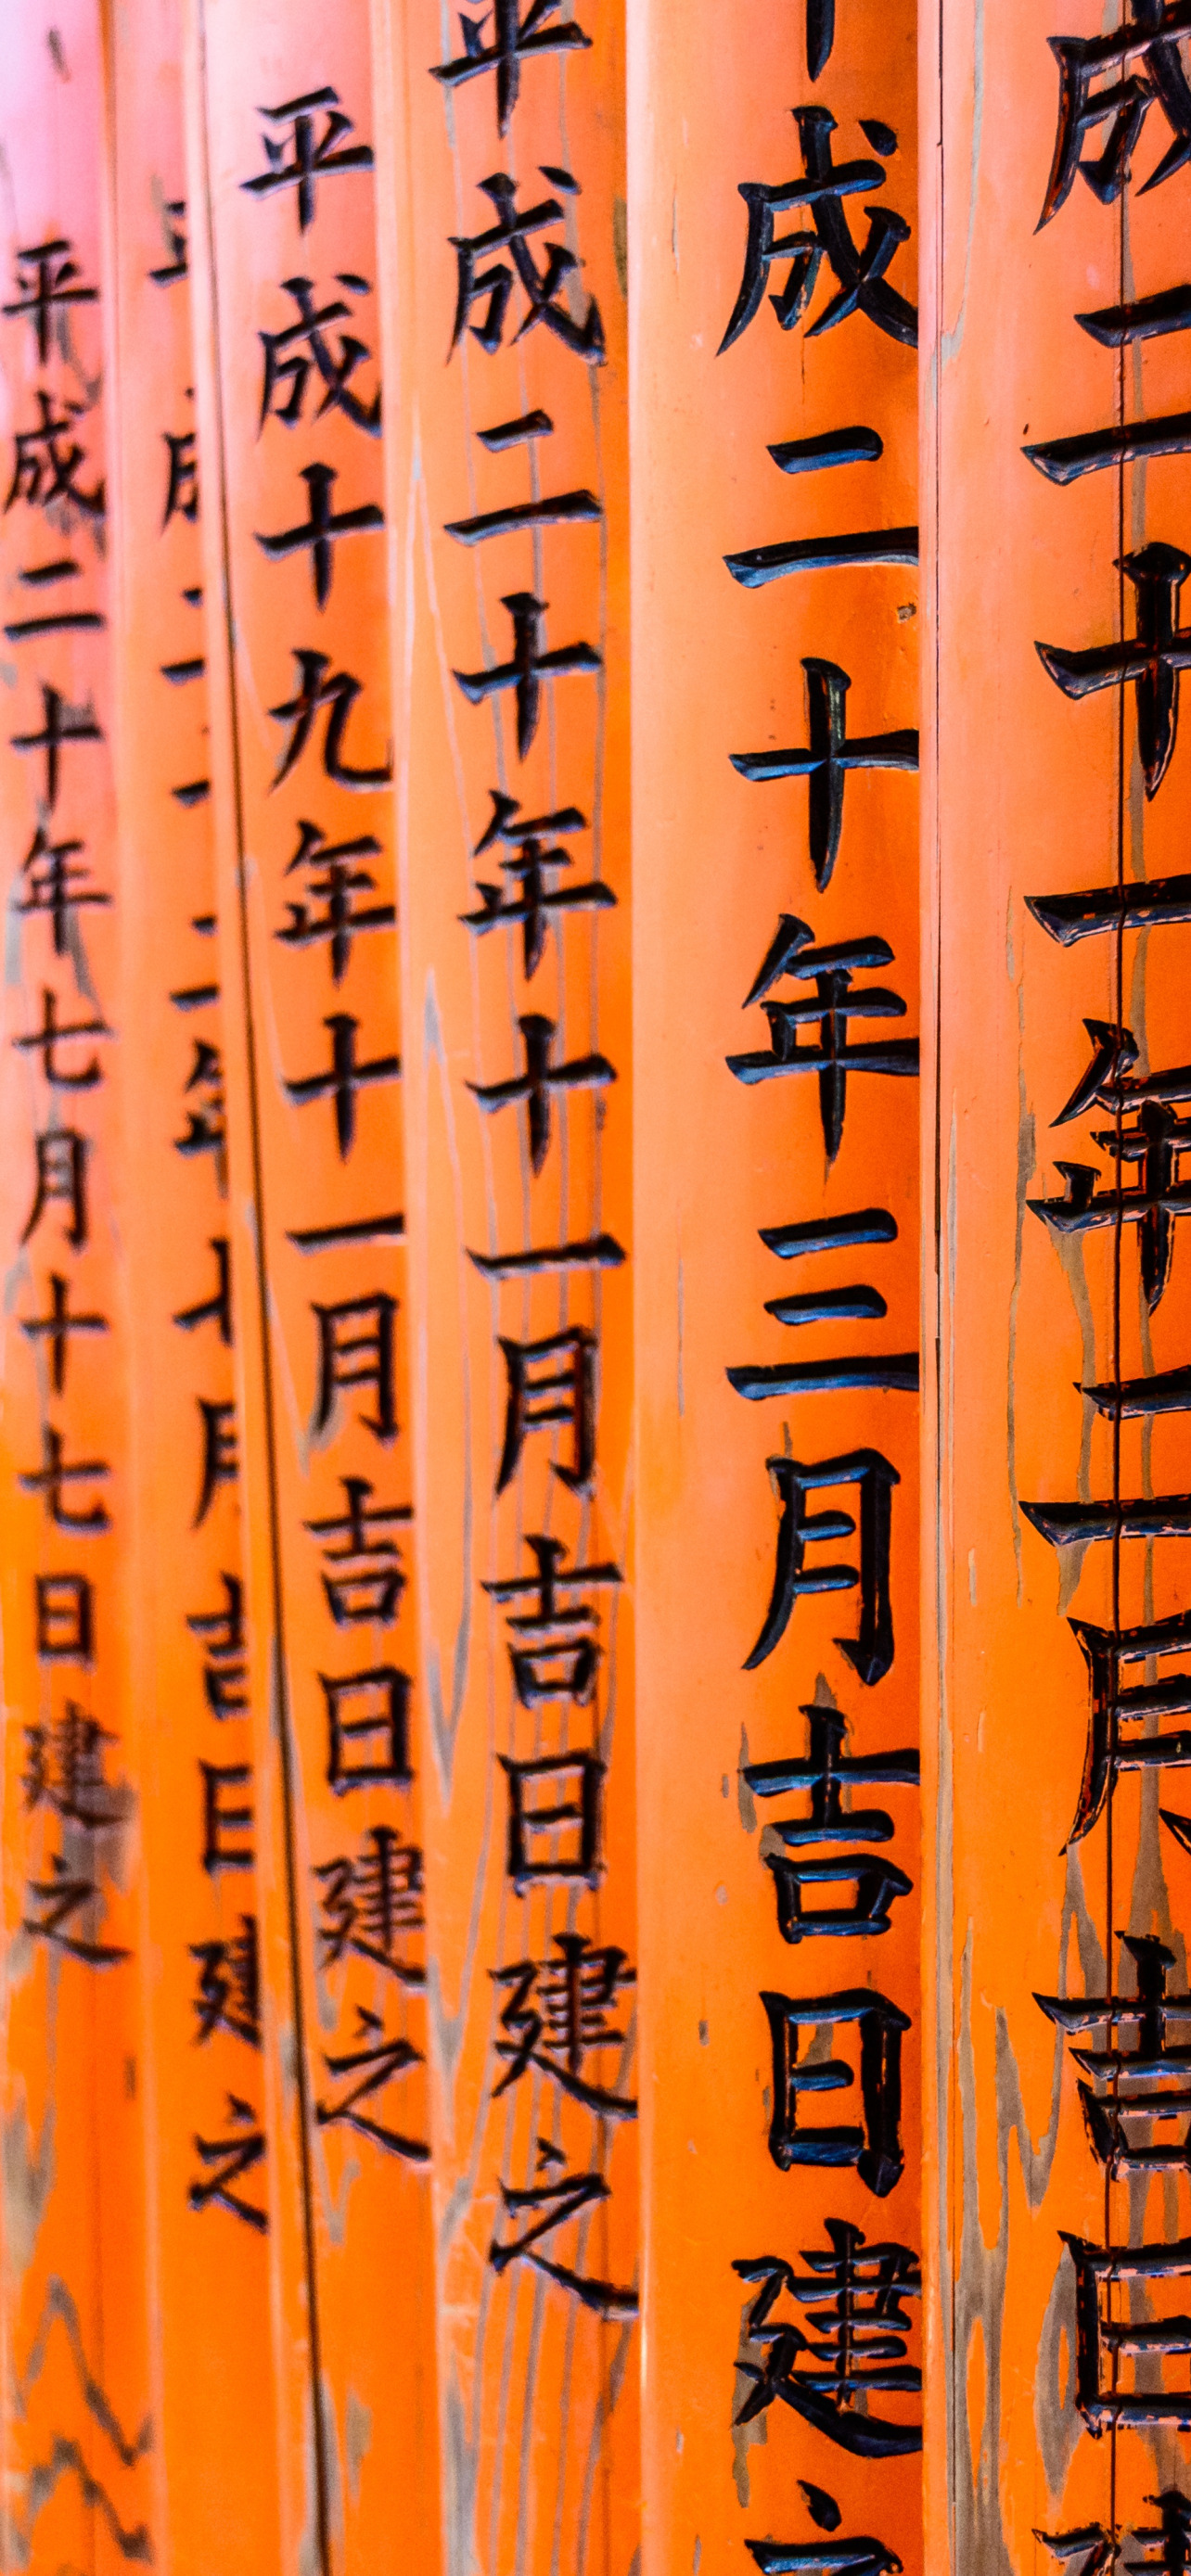 成二十一年二月吉日建
平成二十年三月吉日建之
平成二十年十一月吉日建之
平成十九年十一月吉日建之
平成二十二年 月吉日建之
平成二十年七月十七日建之